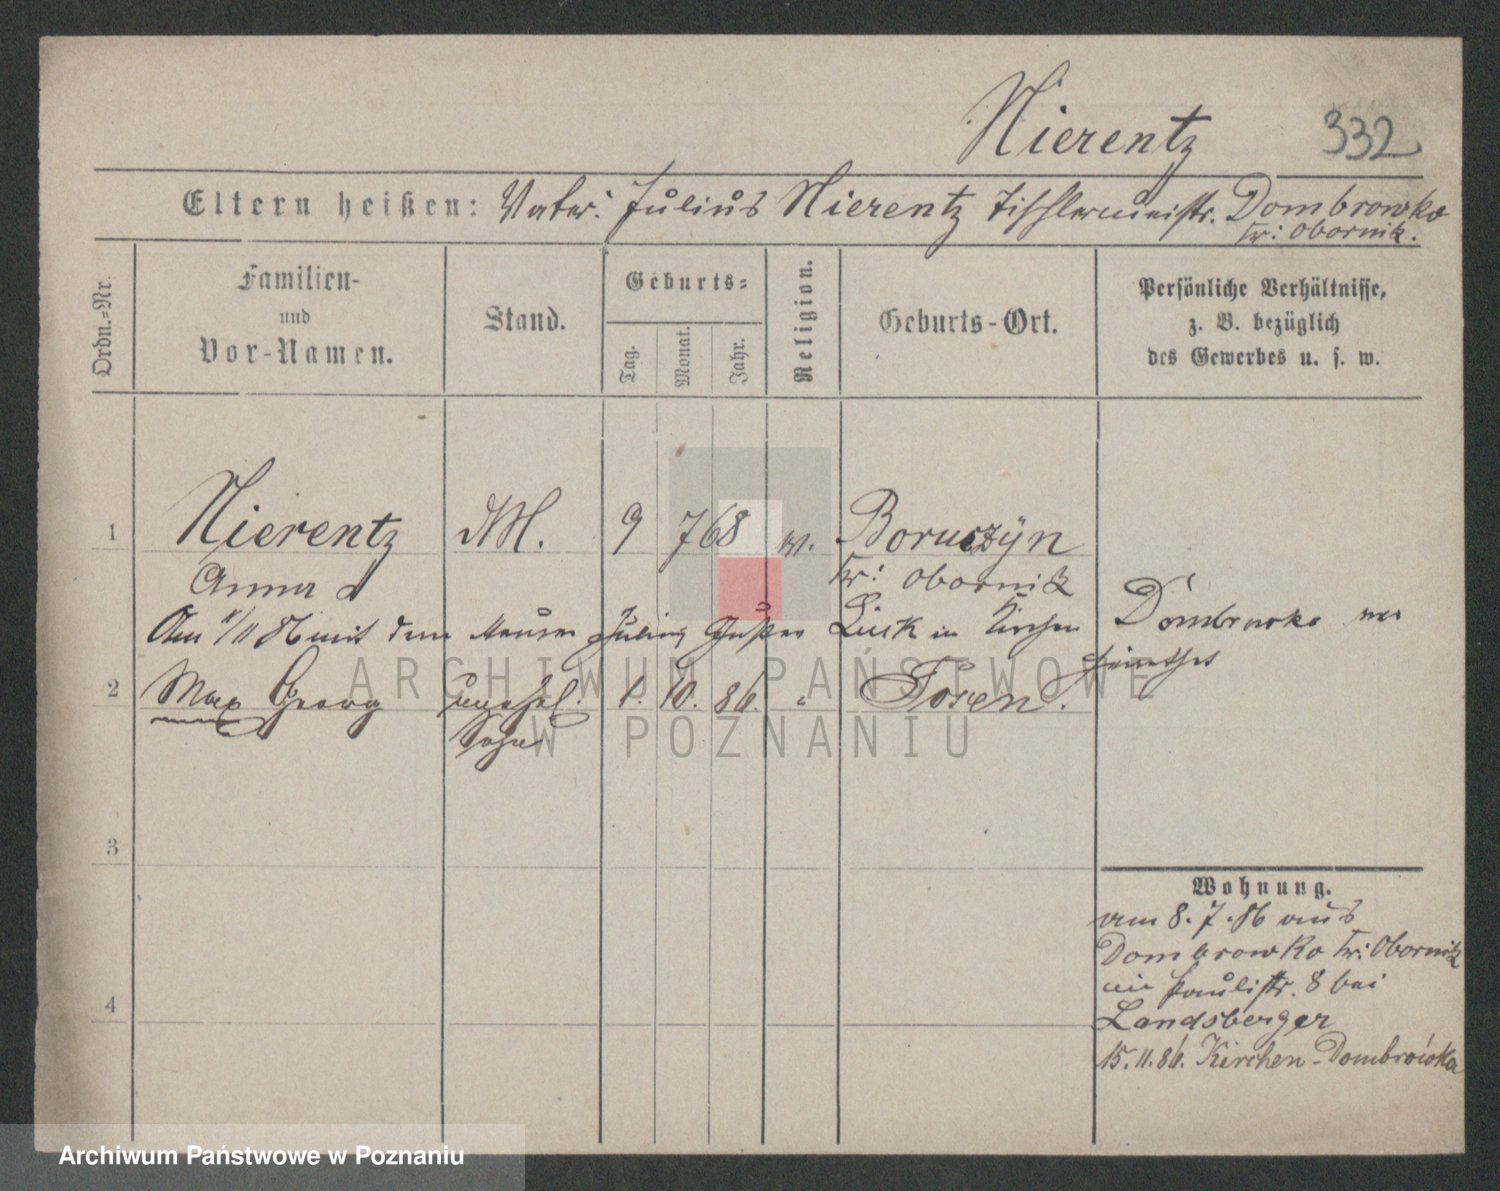 Nierentz 332
Eltern heißen: Vater: Julius Nierentz Tischlermeistr. Dombrowka
Kr: Obornik.
Ordn.-Nr.
Familien-
und
Vor-Namen.
Stand.
Geburts-
Tag.
Monat.
Jahr.
Religion.
Geburts-Ort.
Persönliche Verhältnisse,
z. B. bezüglich
des Gewerbes u. s. w.
1 Nierentz DM. 9 7 68 Boruszÿn
Anna Kr: Obornik
11/11 86 mit dem Maurer Julius Lück in Kirchen Dombrowka
2 Max Georg unehel. 1. 10. 86. " Posen.
Sohn
3
4
Wohnung.
am 8. 7. 86 aus
Dombrowka Kr: Obornik
Paulistr. 8 bei
Landsberger
15.11.86. Kirchen-Dombrówka
ARCHIWUM PAŃSTWOWE
W POZNANIU
Archiwum Państwowe w Poznaniu